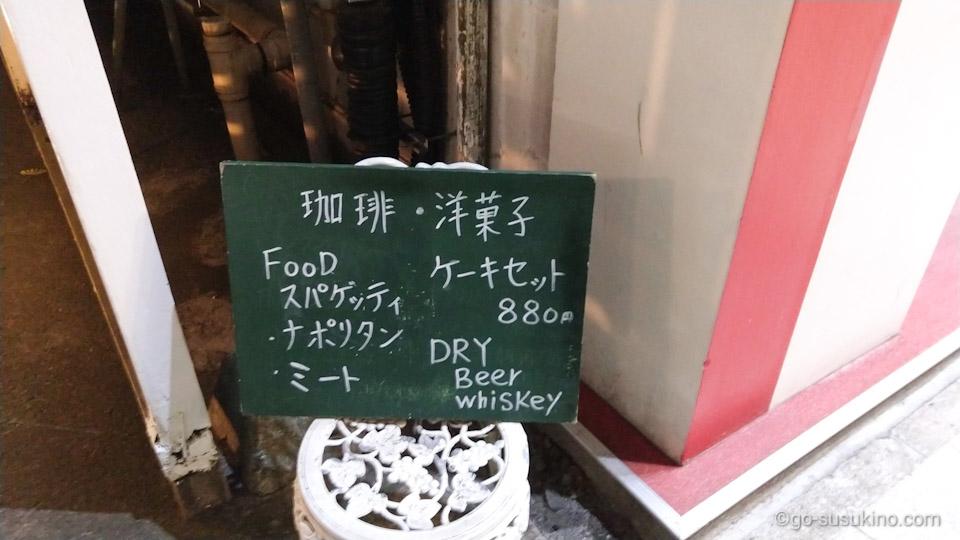 珈琲・洋菓子
FooD
スパゲッティ
・ナポリタン
・ミート
ケーキセット
880円
DRY
Beer
whiskey
©go-susukino.com